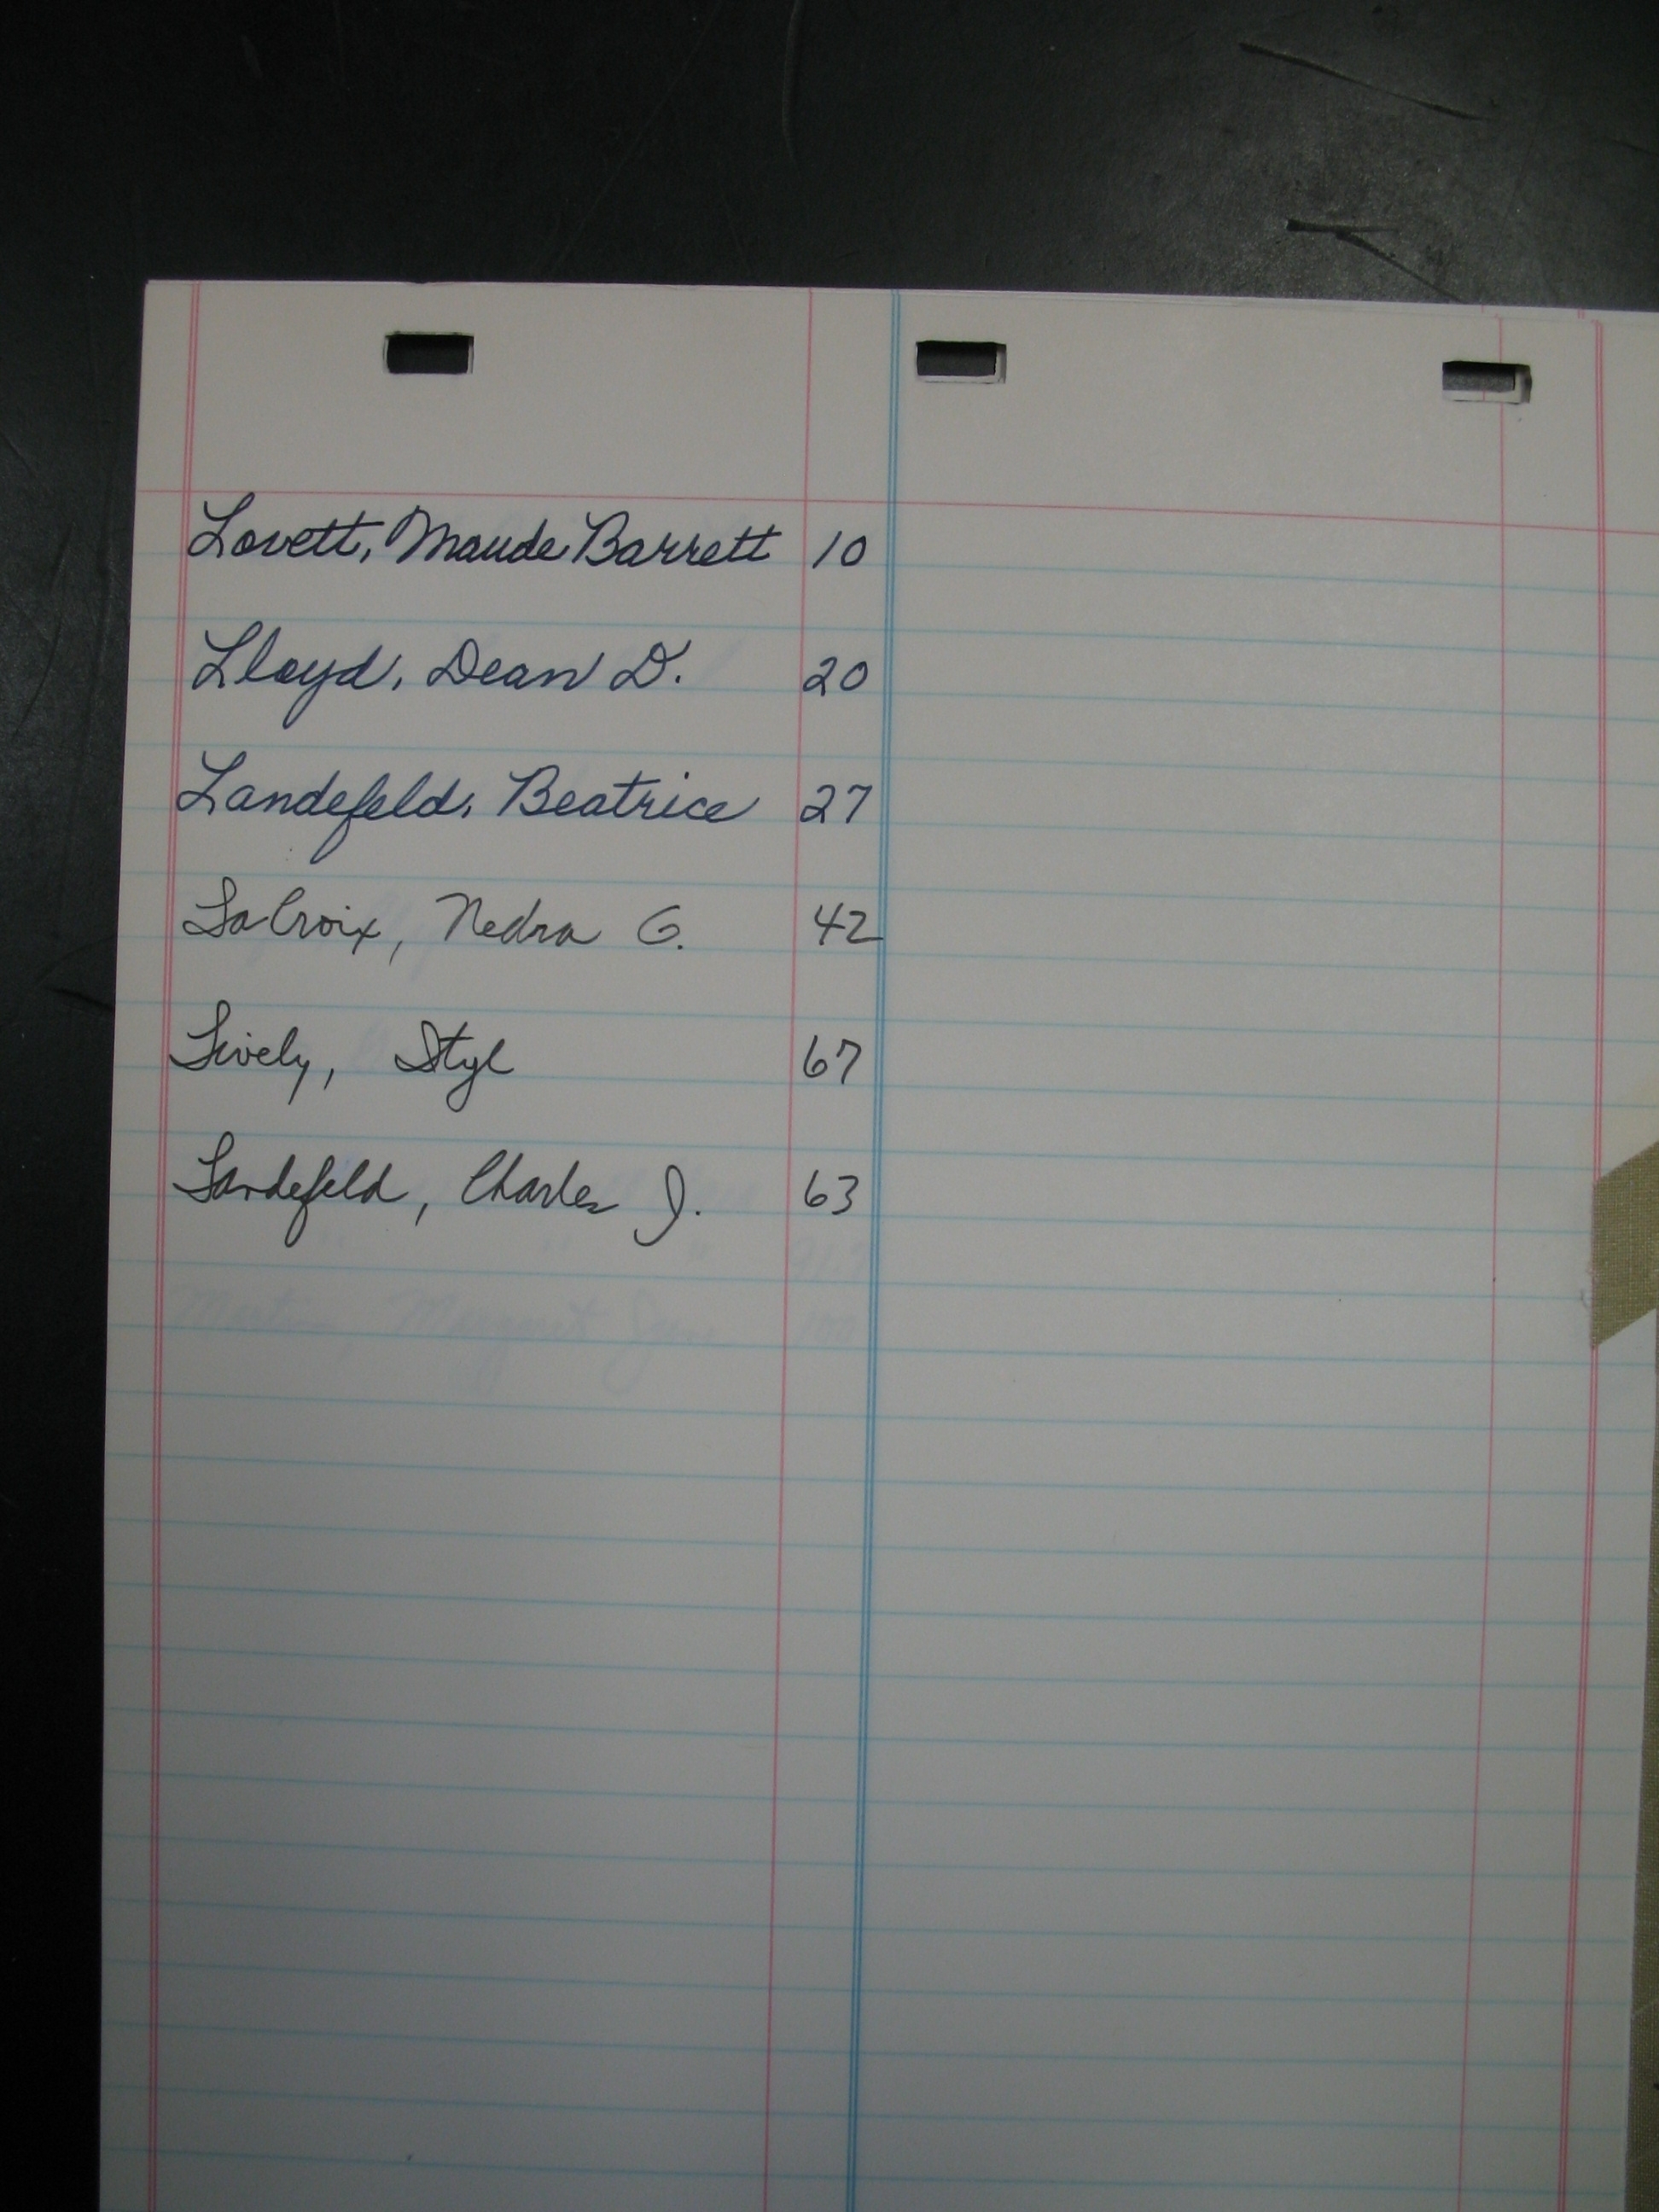 Lovett, Maude Barrett 10
Lloyd, Dean D. 20
Landefeld, Beatrice 27
LaCroix, Nedra G. 42
Lively, Styl 67
Landefeld, Charles J. 63